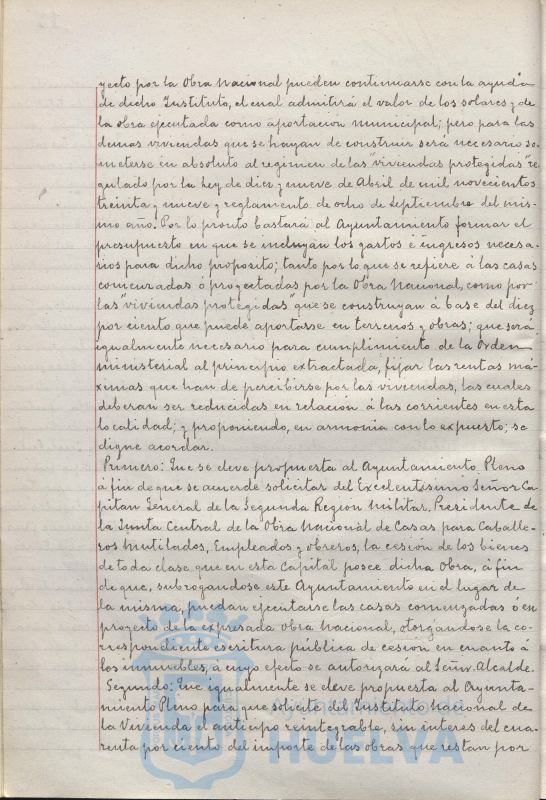 yecto por la Obra Nacional pueden continuarse con la ayuda
de dicho Instituto, el cual admitirá el valor de los solares y de
la obra ejecutada como aportación municipal; pero para las
demas viviendas que se hayan de construir será necesario so-
meterse en absoluto al regimen de las "viviendas protegidas" re-
gulado por la ley de diez y nueve de Abril de mil novecientos
treinta y nueve y reglamento de ocho de Septiembre del mis-
mo año. Por lo pronto bastará al Ayuntamiento formar el
presupuesto en que se incluyan los gastos é ingresos necesa-
rios para dicho proposito; tanto por lo que se refiere á las casas
comenzadas ó proyectadas por la Obra Nacional, como por
las "viviendas protegidas" que se construyan á base del diez
por ciento que puede aportarse en terrenos y obras; que será
igualmente necesario para cumplimiento de la Orden
ministerial al principio extractada, fijar las rentas má-
ximas que han de percibirse por las viviendas, las cuales
deberan ser reducidas en relación á las corrientes en esta
localidad; y proponiendo, en armonia con lo expuesto; se
digne acordar.
Primero: Que se eleve propuesta al Ayuntamiento Pleno
á fin de que se acuerde solicitar del Excelentisimo Señor Ca-
pitan General de la Segunda Region Militar, Presidente de
la Junta Central de la Obra Nacional de Casas para Caballe-
ros Mutilados, Empleados y obreros, la cesión de los bienes
de toda clase que en esta Capital posee dicha Obra, á fin
de que, subrogandose este Ayuntamiento en el lugar de
la misma, puedan ejecutarse las casas comenzadas ó en
proyecto de la expresada Obra Nacional, otorgándose la co-
rrespondiente escritura pública de cesión en cuanto á
los inmuebles, a cuyo efecto se autorizará al Señor Alcalde.
Segundo: Que igualmente se eleve propuesta al Ayunta-
miento Pleno para que solicite del Instituto Nacional de
la Vivienda el anticipo reintegrable, sin interés del cua-
renta por ciento del importe de las obras que restan por
HUELVA